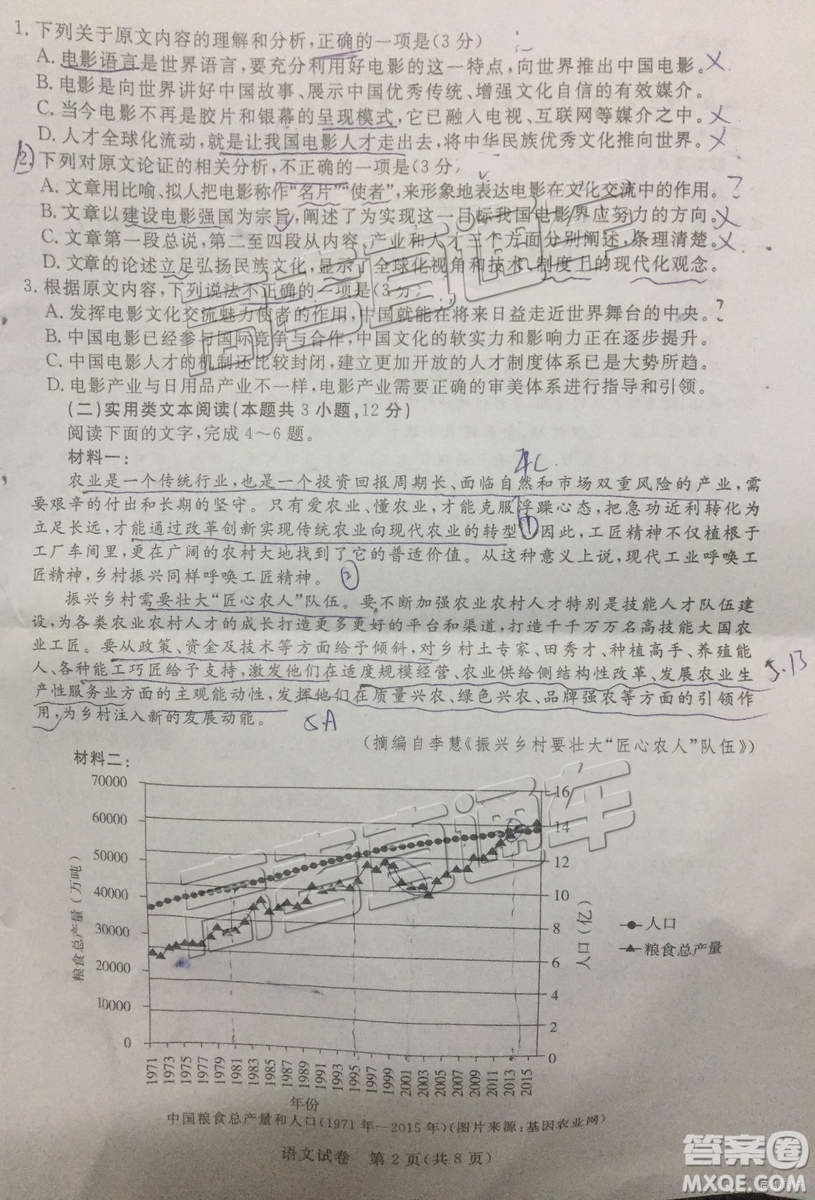 1. 下列关于原文内容的理解和分析,正确的一项是(3分)
A. 电影语言是世界语言,要充分利用好电影的这一特点,向世界推出中国电影。
B. 电影是向世界讲好中国故事、展示中国优秀传统、增强文化自信的有效媒介。
C. 当今电影不再是胶片和银幕的呈现模式,它已融入电视、互联网等媒介之中。
D. 人才全球化流动,就是让我国电影人才走出去,将中华民族优秀文化推向世界。
2. 下列对原文论证的相关分析,不正确的一项是(3分)
A. 文章用比喻、拟人把电影称作“名片”“使者”,来形象地表达电影在文化交流中的作用。?
B. 文章以建设电影强国为宗旨,阐述了为实现这一目标我国电影界应努力的方向。
C. 文章第一段总说,第二至四段从内容、产业和人才三个方面分别阐述,条理清楚。
D. 文章的论述立足弘扬民族文化,显示了全球化视角和技术、制度上的现代化观念。
3. 根据原文内容,下列说法不正确的一项是(3分)
A. 发挥电影文化交流魅力使者的作用,中国就能在将来日益走近世界舞台的中央。?
B. 中国电影已经参与国际竞争与合作,中国文化的软实力和影响力正在逐步提升。
C. 中国电影人才的机制还比较封闭,建立更加开放的人才制度体系已是大势所趋。
D. 电影产业与日用品产业不一样,电影产业需要正确的审美体系进行指导和引领。
(二)实用类文本阅读(本题共3小题,12分)
阅读下面的文字,完成4~6题。
材料一:
4C
农业是一个传统行业,也是一个投资回报周期长、面临自然和市场双重风险的产业,需
要艰辛的付出和长期的坚守。只有爱农业、懂农业,才能克服浮躁心态,把急功近利转化为
立足长远,才能通过改革创新实现传统农业向现代农业的转型①因此,工匠精神不仅植根于
工厂车间里,更在广阔的农村大地找到了它的普适价值。从这种意义上说,现代工业呼唤工
匠精神,乡村振兴同样呼唤工匠精神。②
振兴乡村需要壮大“匠心农人”队伍。要不断加强农业农村人才特别是技能人才队伍建
设,为各类农业农村人才的成长打造更多更好的平台和渠道,打造千千万万名高技能大国农
业工匠。要从政策、资金及技术等方面给予倾斜,对乡村土专家、田秀才,种植高手、养殖能
人、各种能工巧匠给予支持,激发他们在适度规模经营、农业供给侧结构性改革、发展农业生
5.B
产性服务业方面的主观能动性,发挥他们在质量兴农、绿色兴农、品牌强农等方面的引领作
用,为乡村注入新的发展动能。
5A
(摘编自李慧《振兴乡村要壮大“匠心农人”队伍》)
材料二:
70000
60000
50000
40000
30000
20000
10000
0
粮食总产量(万吨)
16
14
12
10
8
6
4
2
0
人口(亿)
人口
粮食总产量
1971 1973 1975 1977 1979 1981 1983 1985 1987 1989 1991 1993 1995 1997 1999 2001 2003 2005 2007 2009 2011 2013 2015
年份
中国粮食总产量和人口(1971年—2015年)(图片来源:基因农业网)
语文试卷 第2页(共8页)
高考直通车
高考直通车
答案圈
MXQE.COM